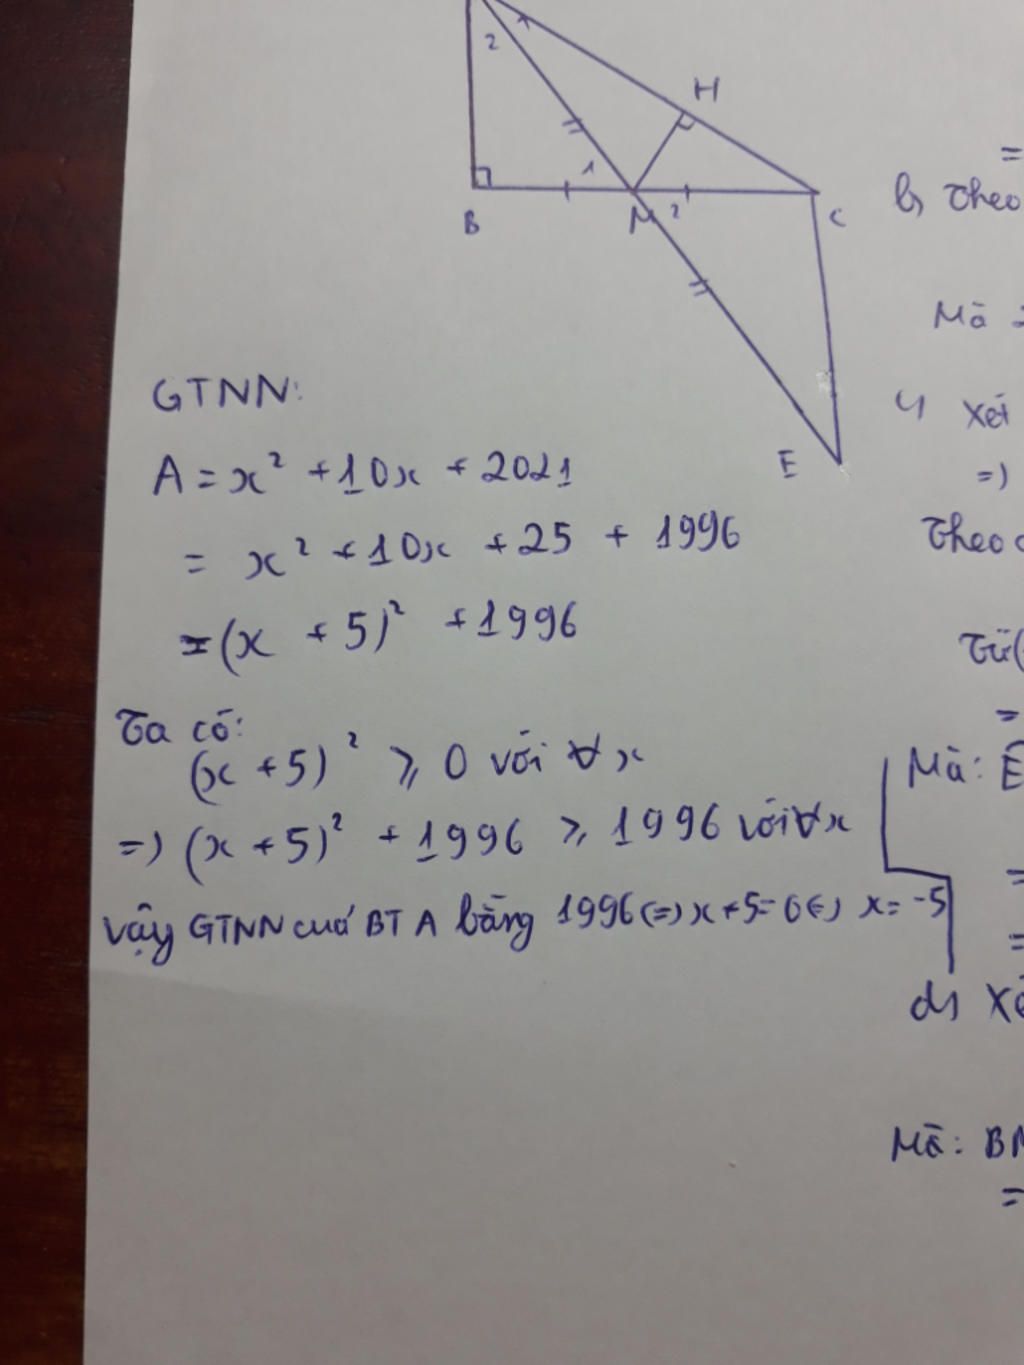 2
H
1
B
M
2
C
E
GTNN:
A = x² + 10x + 2021
= x² + 10x + 25 + 1996
= (x + 5)² + 1996
Ta có:
(x + 5)² ⩾ 0 với ∀x
=) (x + 5)² + 1996 ⩾ 1996 với ∀x
Vậy GTNN cuả BT A bằng 1996 (=) x + 5 = 0 (=) x = -5
=
b, Theo
Mà
c, Xét
=)
Theo
Từ (
=
Mà: Ê
=
=
d, Xé
Mà: BM
=